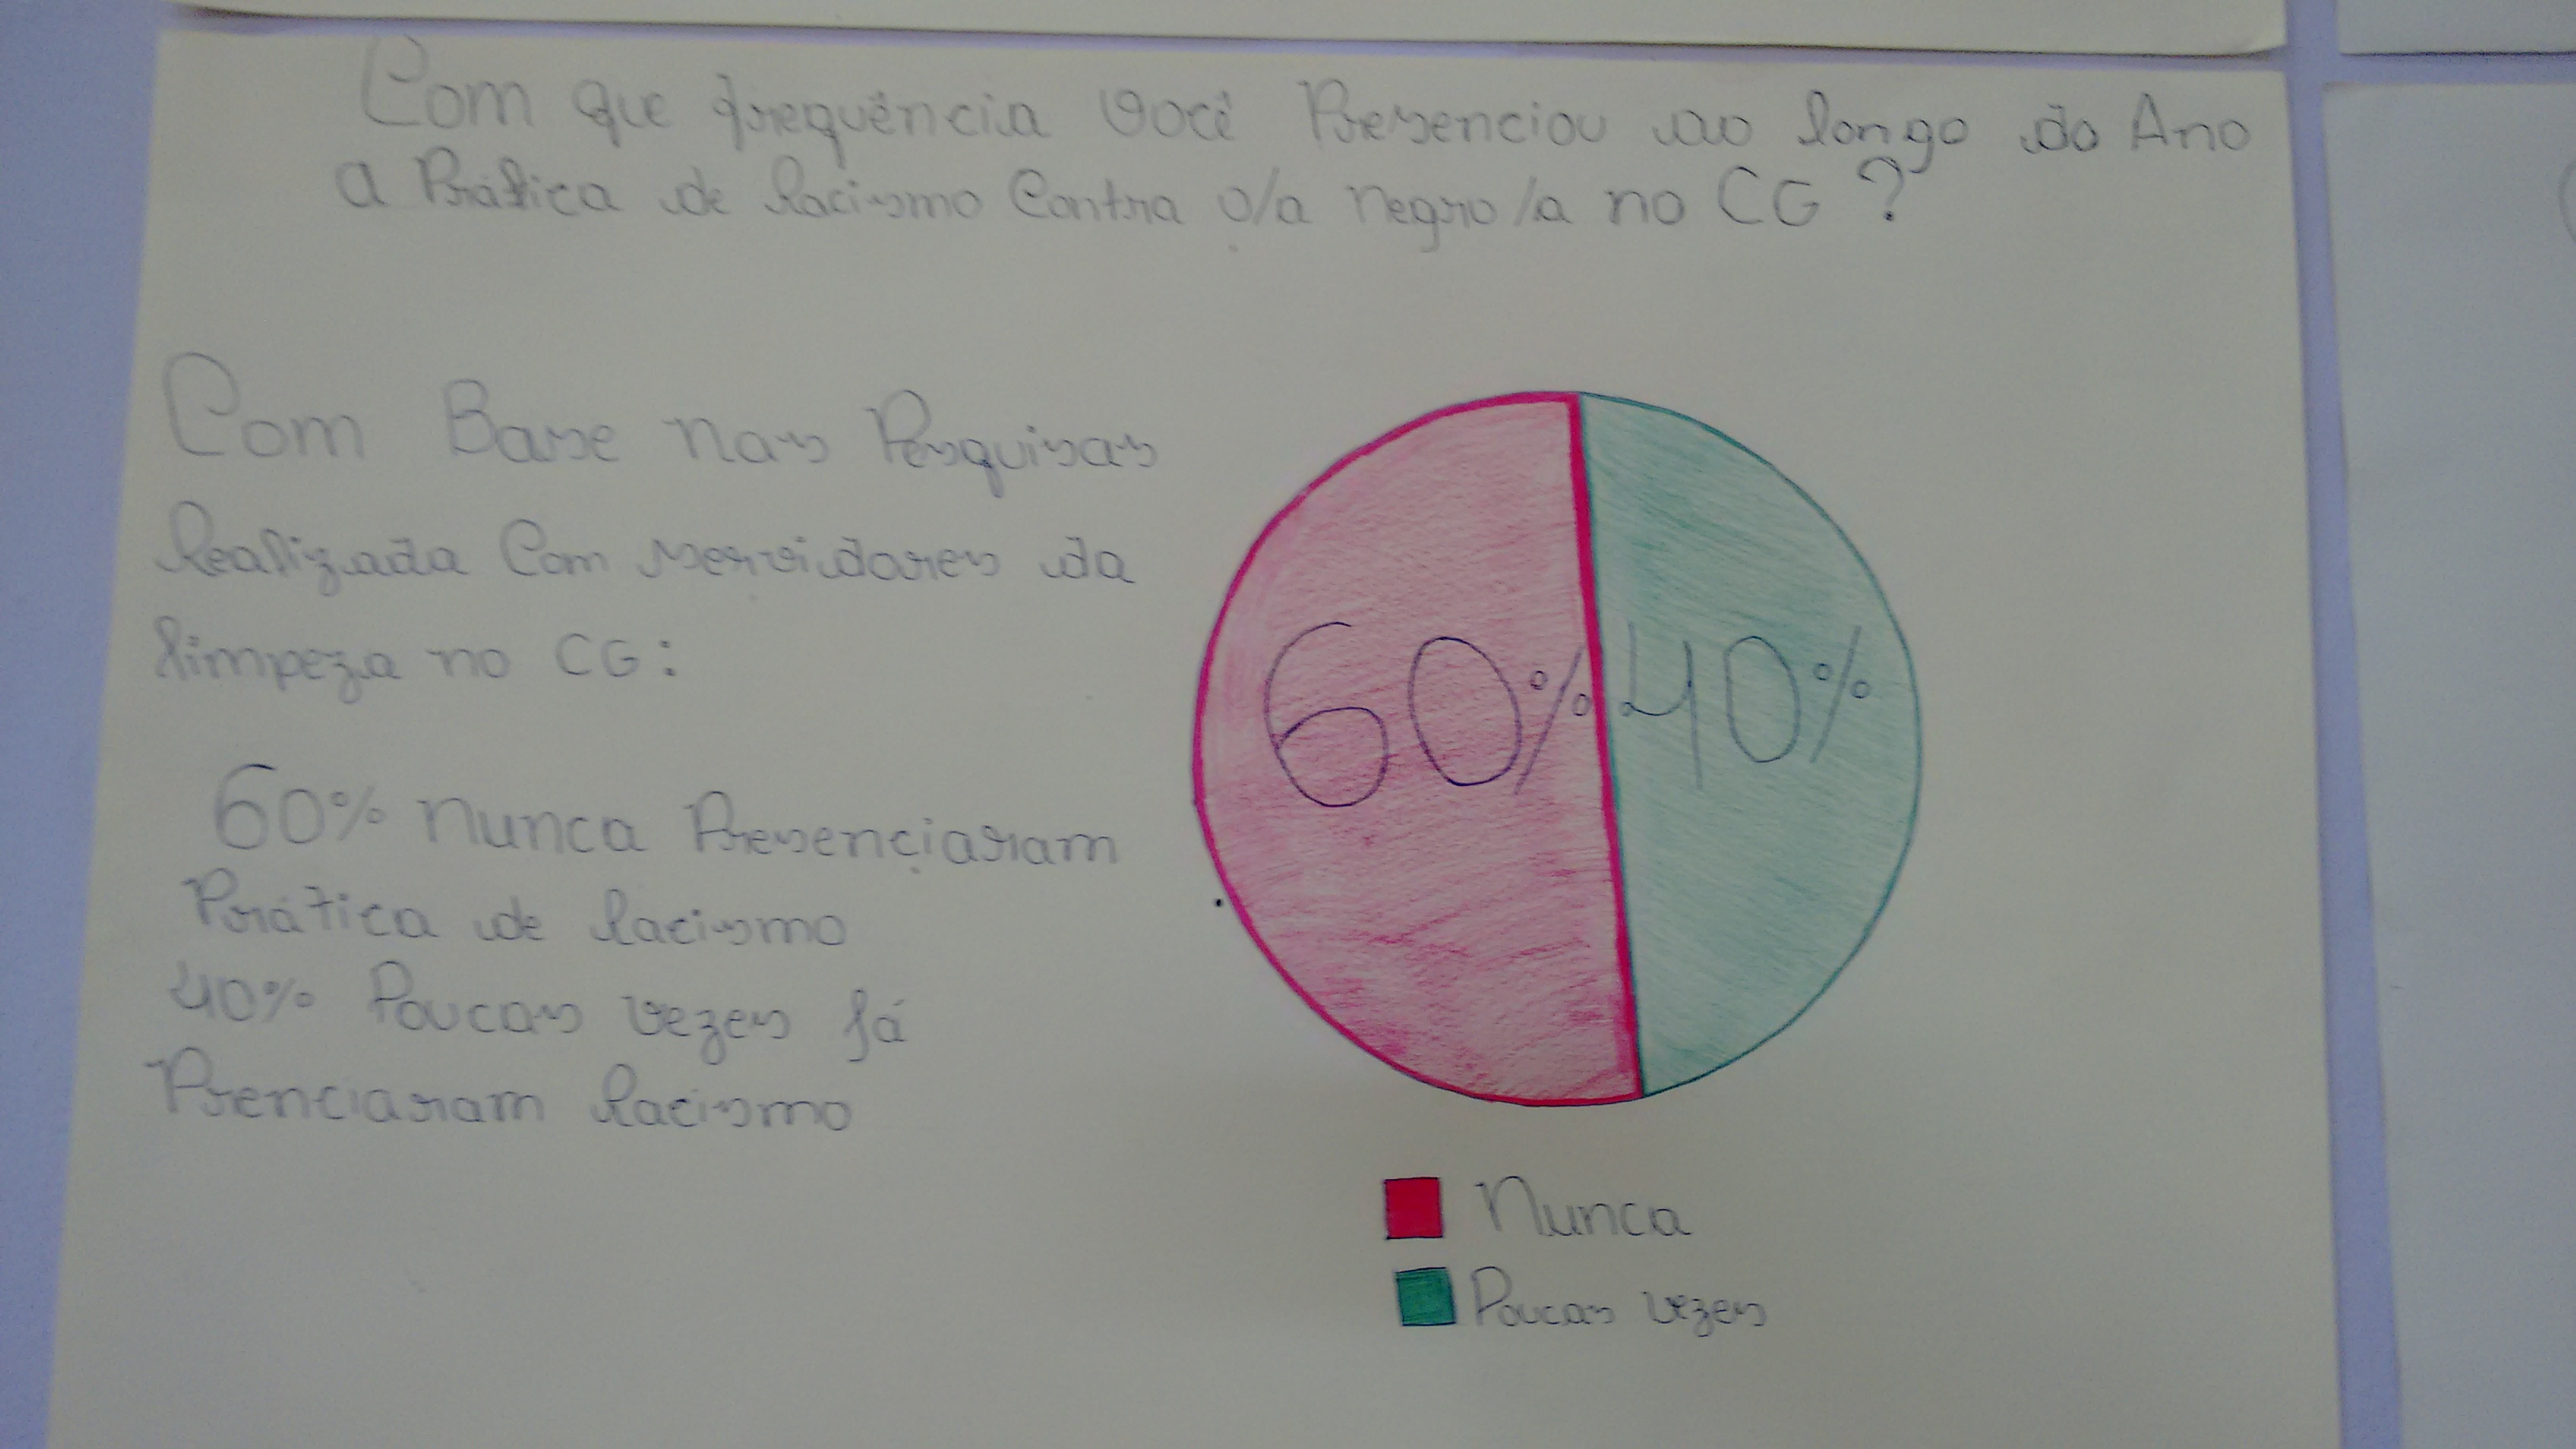 Com que frequência você Presenciou ao longo do Ano
a Prática de Racismo Contra o/a negro/a no CG?
Com Base nas Pesquisas
Realizada Com servidores da
limpeza no CG:
60% nunca Presenciaram
Prática de Racismo
40% Poucas vezes Já
Prenciaram Racismo
60% 40%
Nunca
Poucas vezes